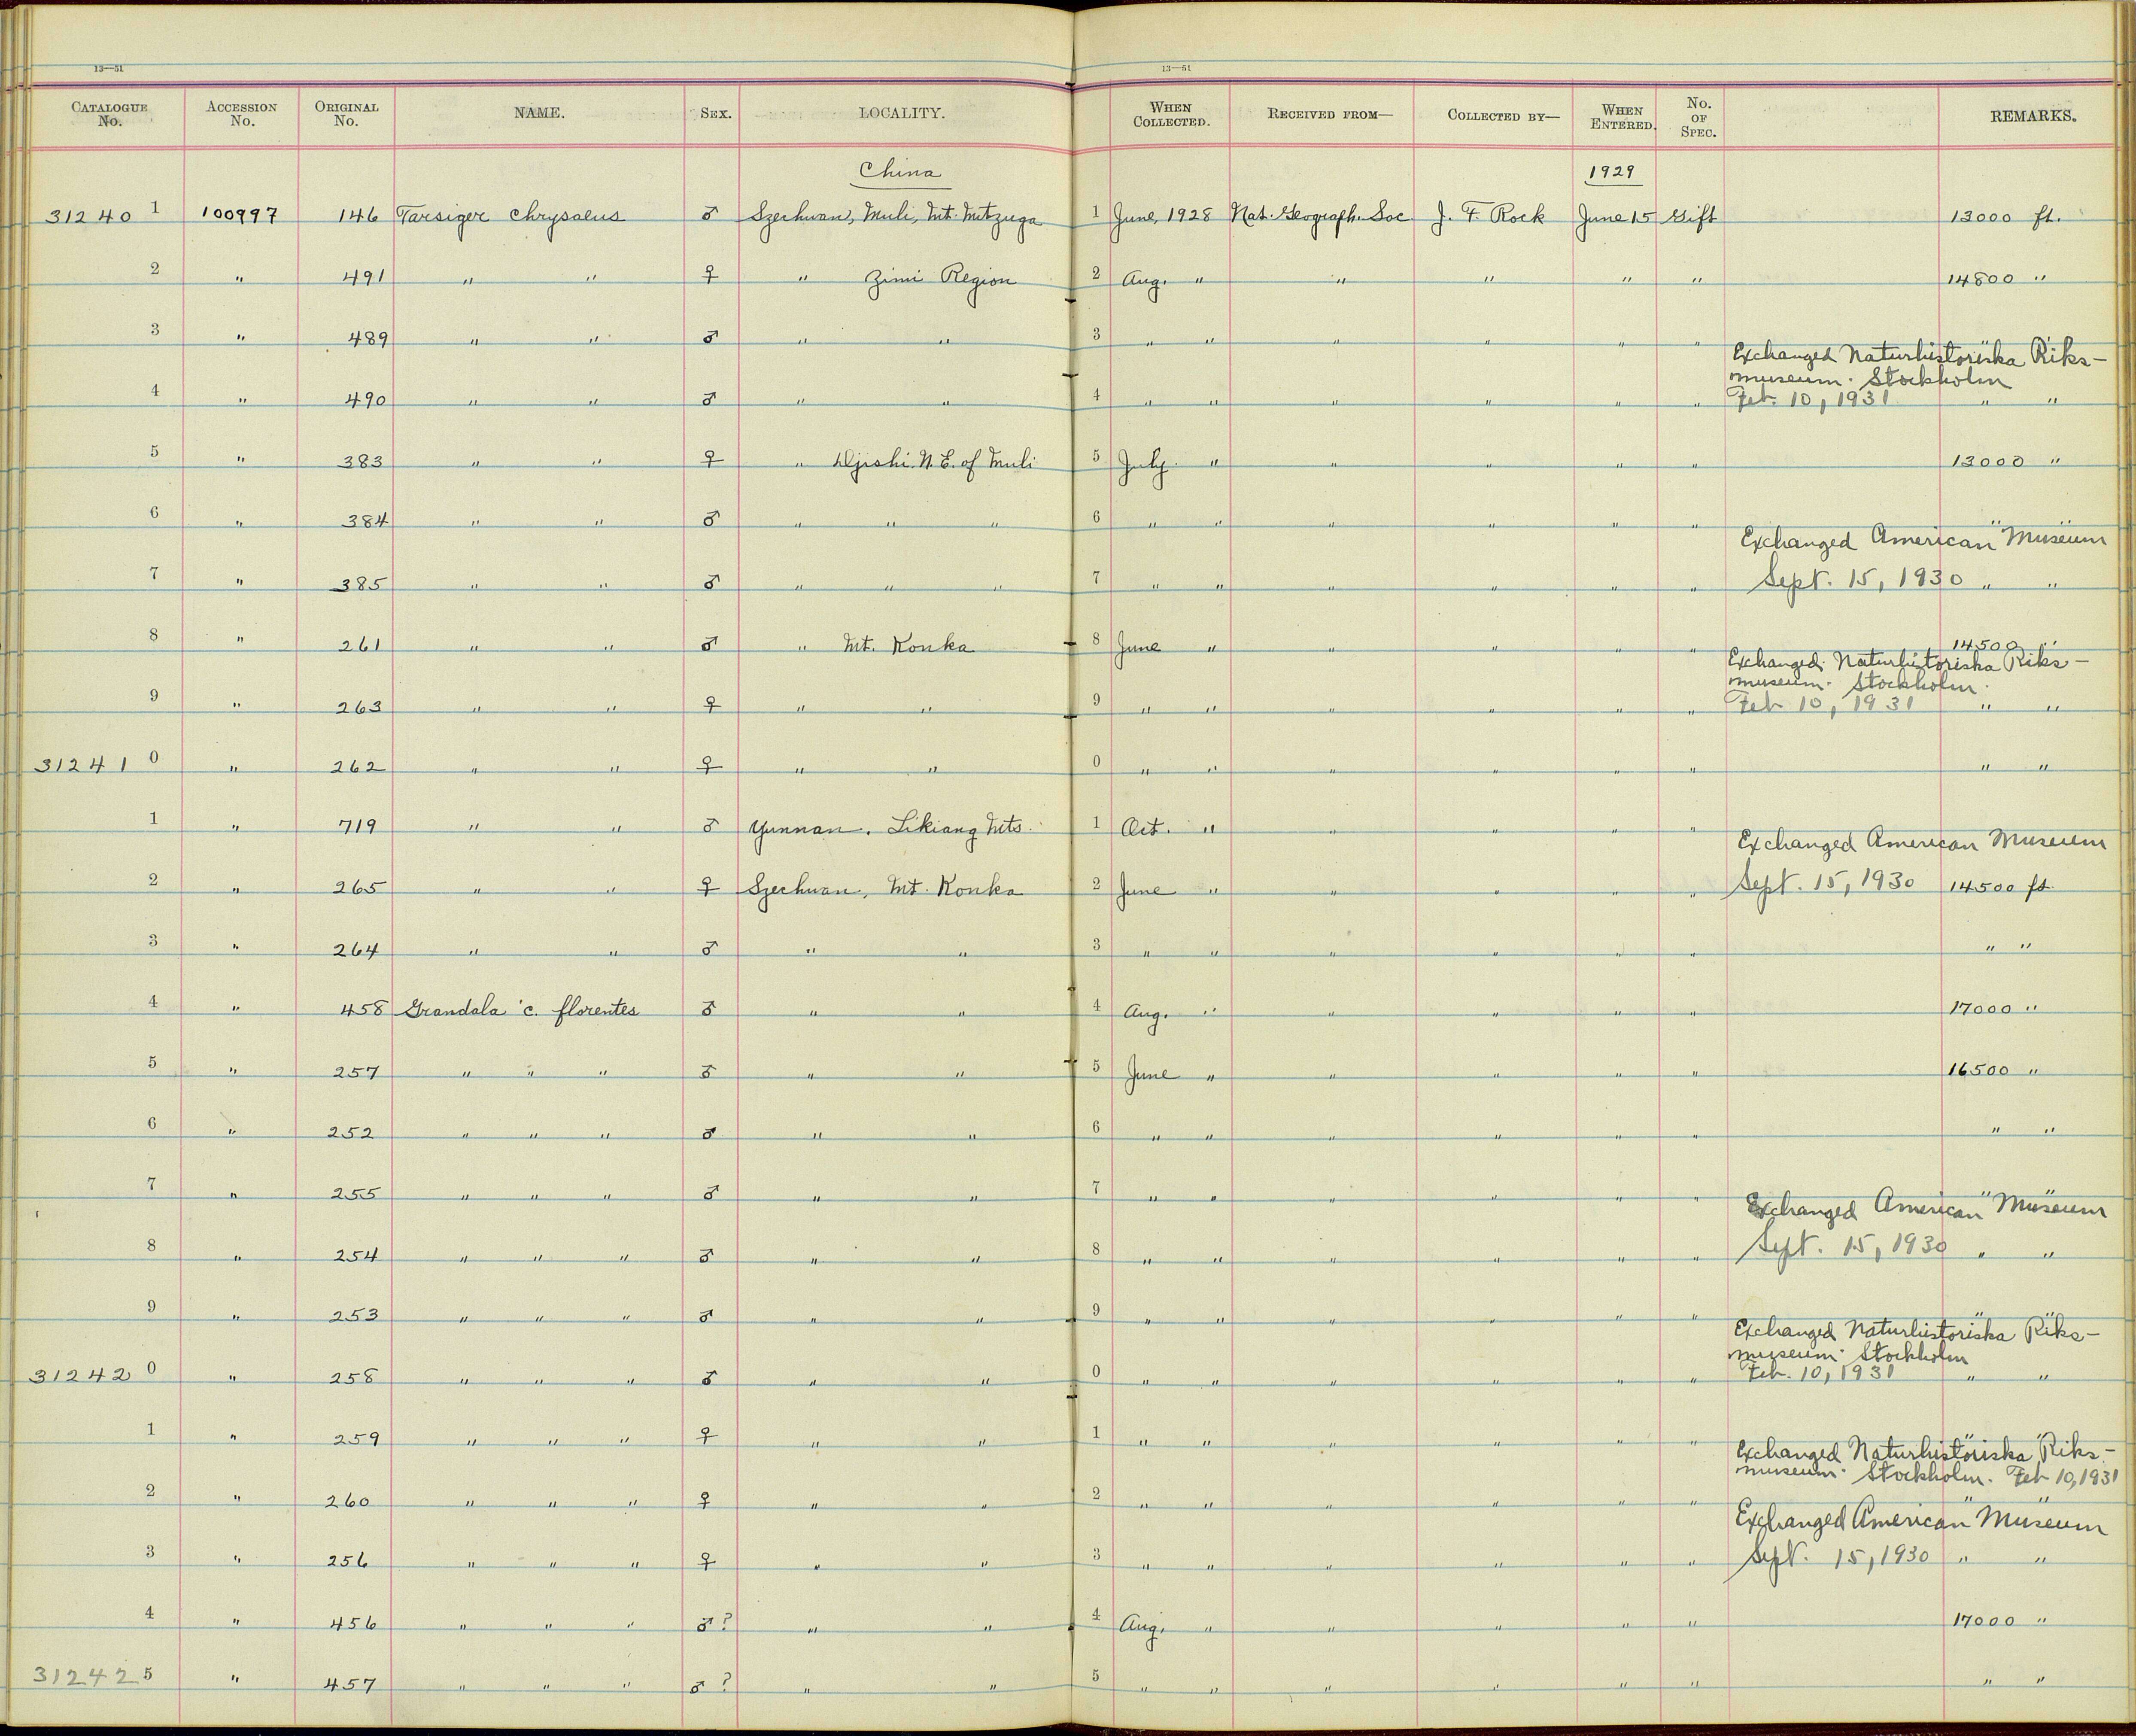 13—51 13—51
CATALOGUE No. ACCESSION No. ORIGINAL No. NAME. SEX. LOCALITY. WHEN COLLECTED. RECEIVED FROM— COLLECTED BY— WHEN ENTERED. No. OF SPEC. REMARKS.
China 1929
31240 1 100997 146 Tarsiger chrysaeus ♂ Szechwan, Muli, Mt. Mitzuga 1 June, 1928 Nat. Geograph. Soc J. F. Rock June 15 Gift 13000 ft.
2 " 491 " " ♀ " Zimi Region 2 Aug. " " " " " 14800 "
3 " 489 " " ♂ " " 3 " " " " " " " "
Exchanged Naturhistoriska Riks-
museum. Stockholm
4 " 490 " " ♂ " " 4 " " " " " " Feb. 10, 1931 " "
5 " 383 " " ♀ " Djishi. N. E. of Muli 5 July " " " " " 13000 "
6 " 384 " " ♂ " " " 6 " " " " " " " "
Exchanged American Museum
7 " 385 " " ♂ " " " 7 " " " " " " Sept. 15, 1930 " "
8 " 261 " " ♂ " Mt. Konka 8 June " " " " " 14500 "
Exchanged Naturhistoriska Riks-
museum. Stockholm.
9 " 263 " " ♀ " " 9 " " " " " " Feb 10, 1931 " "
31241 0 " 262 " " ♀ " " 0 " " " " " " " "
1 " 719 " " ♂ Yunnan. Likiang Mts. 1 Oct. " " " " "
Exchanged American Museum
2 " 265 " " ♀ Szechuan, Mt. Konka 2 June " " " " " Sept. 15, 1930 14500 ft.
3 " 264 " " ♂ " " 3 " " " " " " " "
4 " 458 Grandala c. florentes ♂ " " 4 Aug. " " " " " 17000 "
5 " 257 " " " ♂ " " 5 June " " " " " 16500 "
6 " 252 " " " ♂ " " 6 " " " " " " " "
7 " 255 " " " ♂ " " 7 " " " " " " " "
Exchanged American Museum
8 " 254 " " " ♂ " " 8 " " " " " " Sept. 15, 1930 " "
9 " 253 " " " ♂ " " 9 " " " " " " " "
Exchanged Naturhistoriska Riks-
museum. Stockholm
31242 0 " 258 " " " ♂ " " 0 " " " " " " Feb. 10, 1931 " "
1 " 259 " " " ♀ " " 1 " " " " " " " "
Exchanged Naturhistoriska Riks-
museum. Stockholm. Feb 10, 1931
2 " 260 " " " ♀ " " 2 " " " " " " " "
Exchanged American Museum
3 " 256 " " " ♀ " " 3 " " " " " " Sept. 15, 1930 " "
4 " 456 " " " ♂? " " 4 Aug. " " " " " 17000 "
31242 5 " 457 " " " ♂? " " 5 " " " " " " " "